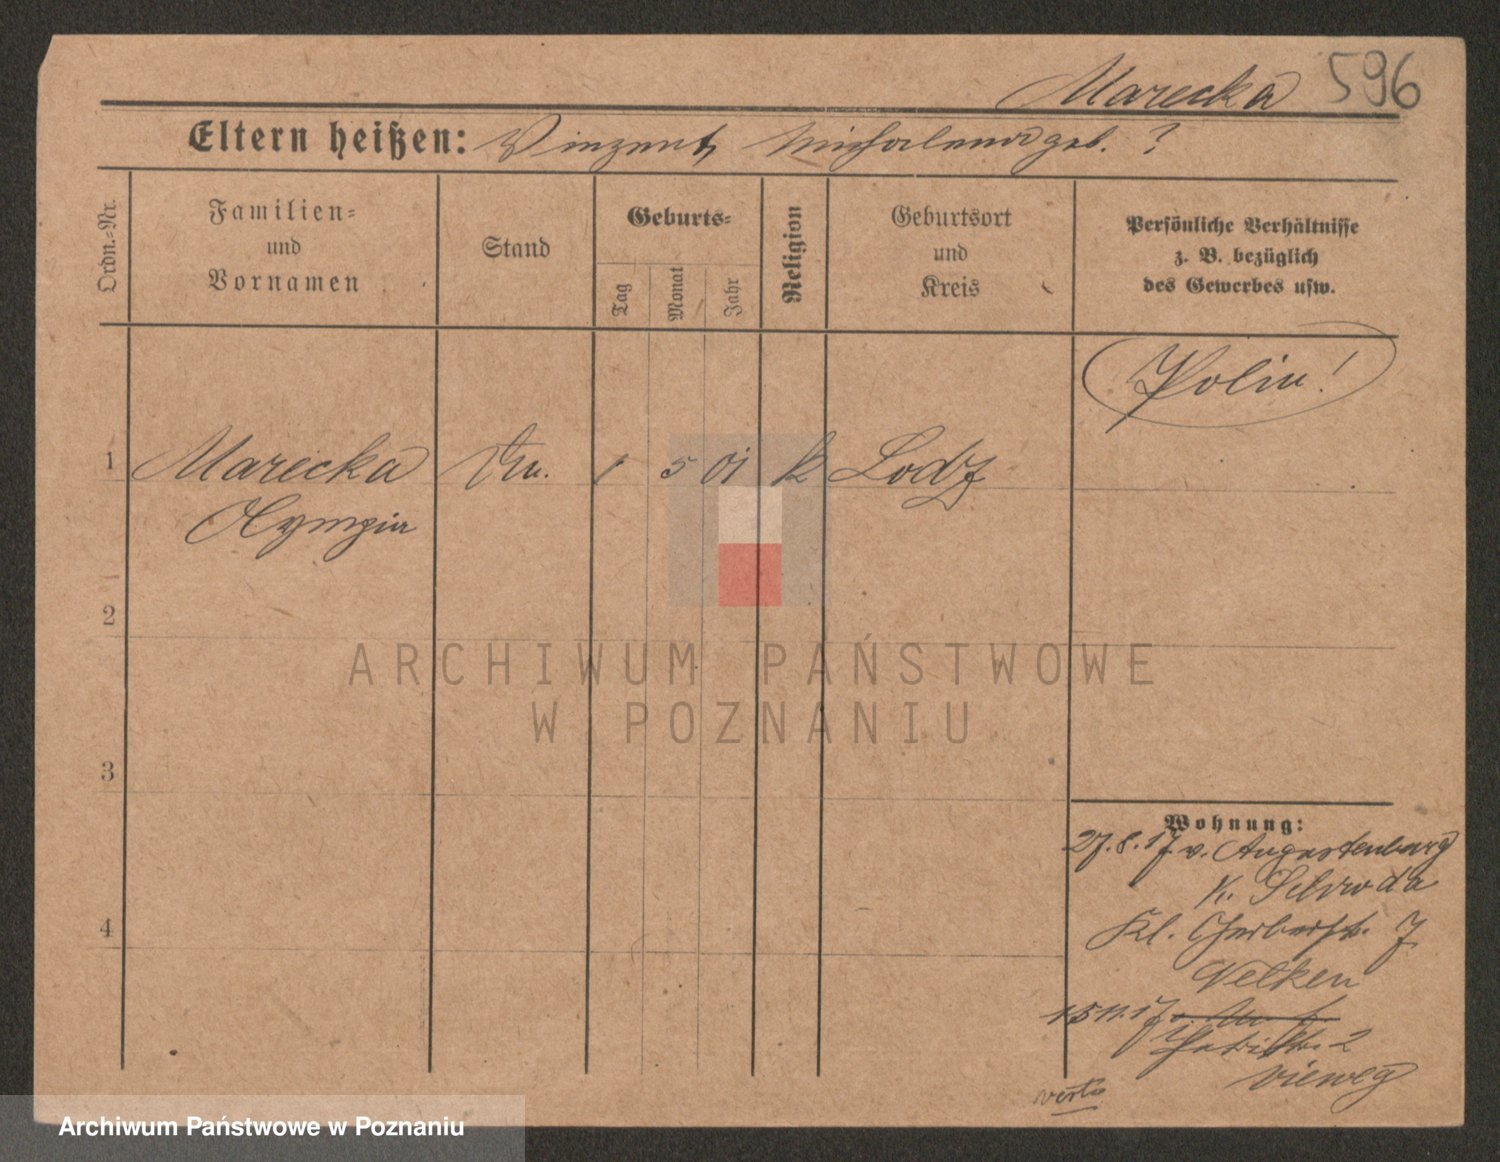 Marecka 596
Eltern heißen: Vinzent, Michalena geb. ?
Ordn.-Nr.
Familien-
und
Vornamen
Stand
Geburts-
Tag
Monat
Jahr
Religion
Geburtsort
und
Kreis
Persönliche Verhältnisse
z. B. bezüglich
des Gewerbes usw.
Polin!
1 Marecka 1 5 01 k Lodz
Olympia
2
3
4
ARCHIWUM PAŃSTWOWE
W POZNANIU
Wohnung:
27.8.17 v. Augustenburg
K. Schroda
Kl. Gerberstr. 7
Velken
15.11.17
2
Vieweg
verte
Archiwum Państwowe w Poznaniu